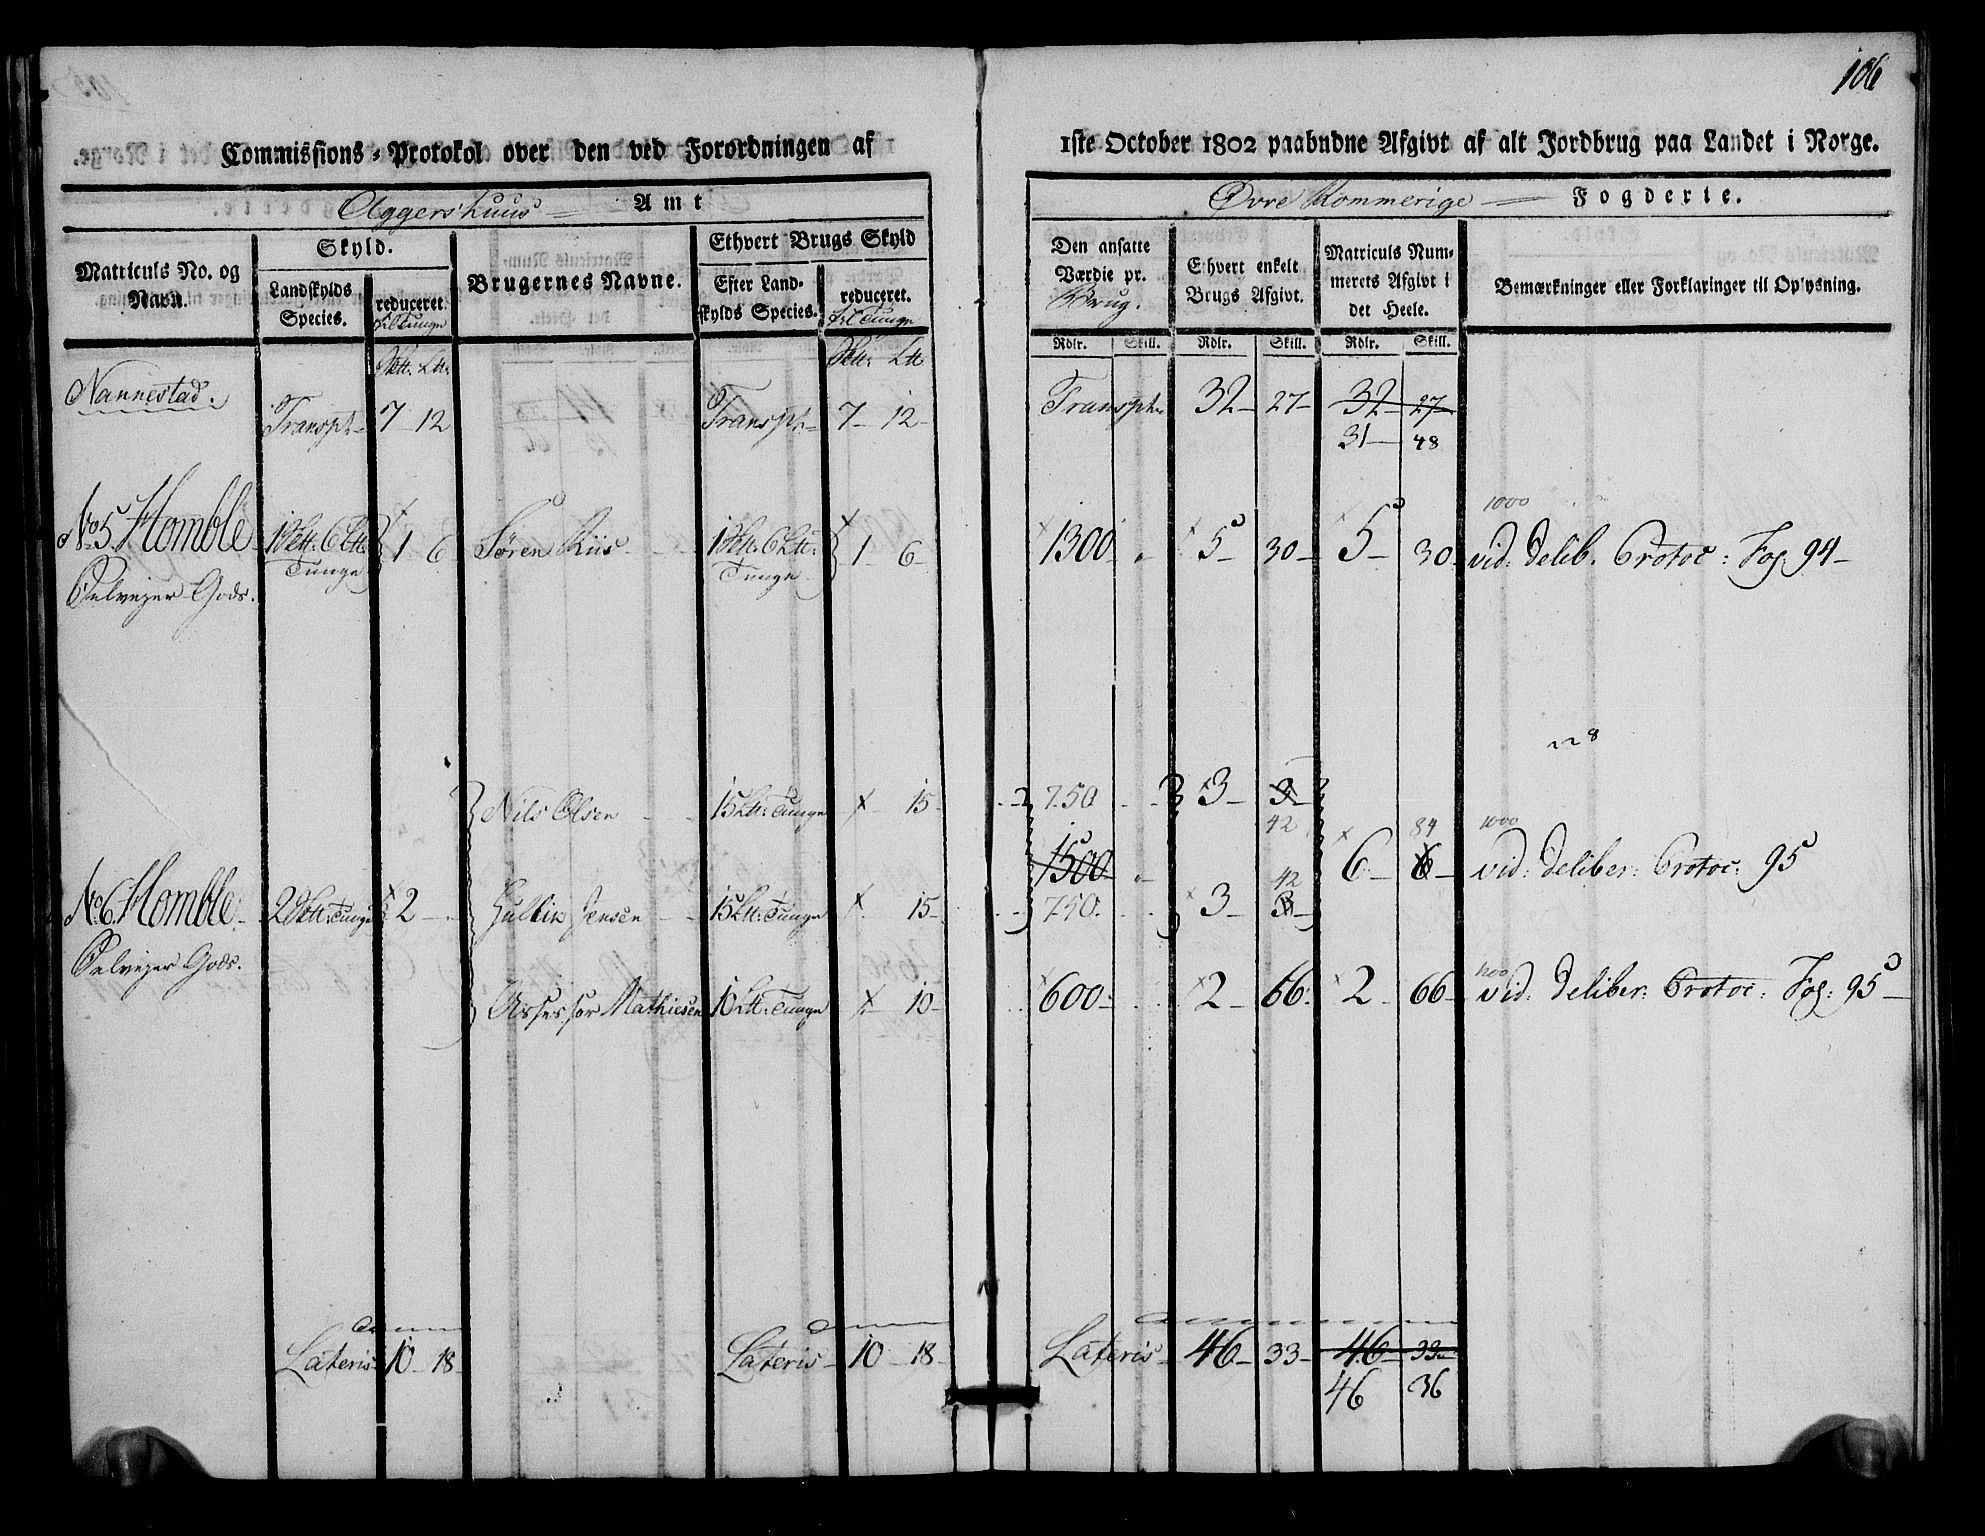 106
Commissions-Protokol over den ved Forordningen af
1ste October 1802 paabudne Afgivt af alt Jordbrug paa Landet i Norge.
Aggershuus Amt
Øvre Rommerige Fogderie.
Matriculs No. og Navn.
Skyld.
Landskylds Species.
reduceret
Brugernes Navne.
Ethvert Brugs Skyld
Efter Landskylds Species.
reduceret.
Den ansatte Værdie pr. Brug.
Ethvert enkelt Brugs Afgivt.
Matriculs Nummerets Afgivt i det Heele.
Bemærkninger eller Forklaringer til Oplysning.
Rdlr. Skill. Rdlr. Skill. Rdlr. Skill.
Nannestad.
Transpt 7 12 Transpt 7 12 Transpt 32 27 32 27
31 48
1000
No 5. Homble 1 6 Søren Riis 1 6 1300 5 30 5 30 vid: Delib. Protoc: Fog. 94
Tunge Tunge
Selveyer Gods.
Nils Olsen 15 Lit: Tunge 15 750 3 3
42 84 1000
1500 6 6 vid: Deliber: Protoc: 95
42
No 6. Homble 2 Tunge 2 Jensen 15 Lit: Tunge 15 750 3 3
Selveyer Gods.
Assessor Mathiesen 10 Lit: Tunge 10 600 2 66 2 66 vid: Deliber: Protoc: Fog: 95
Lateris 10 18 Lateris 10 18 Lateris 46 33 46 33
46 36